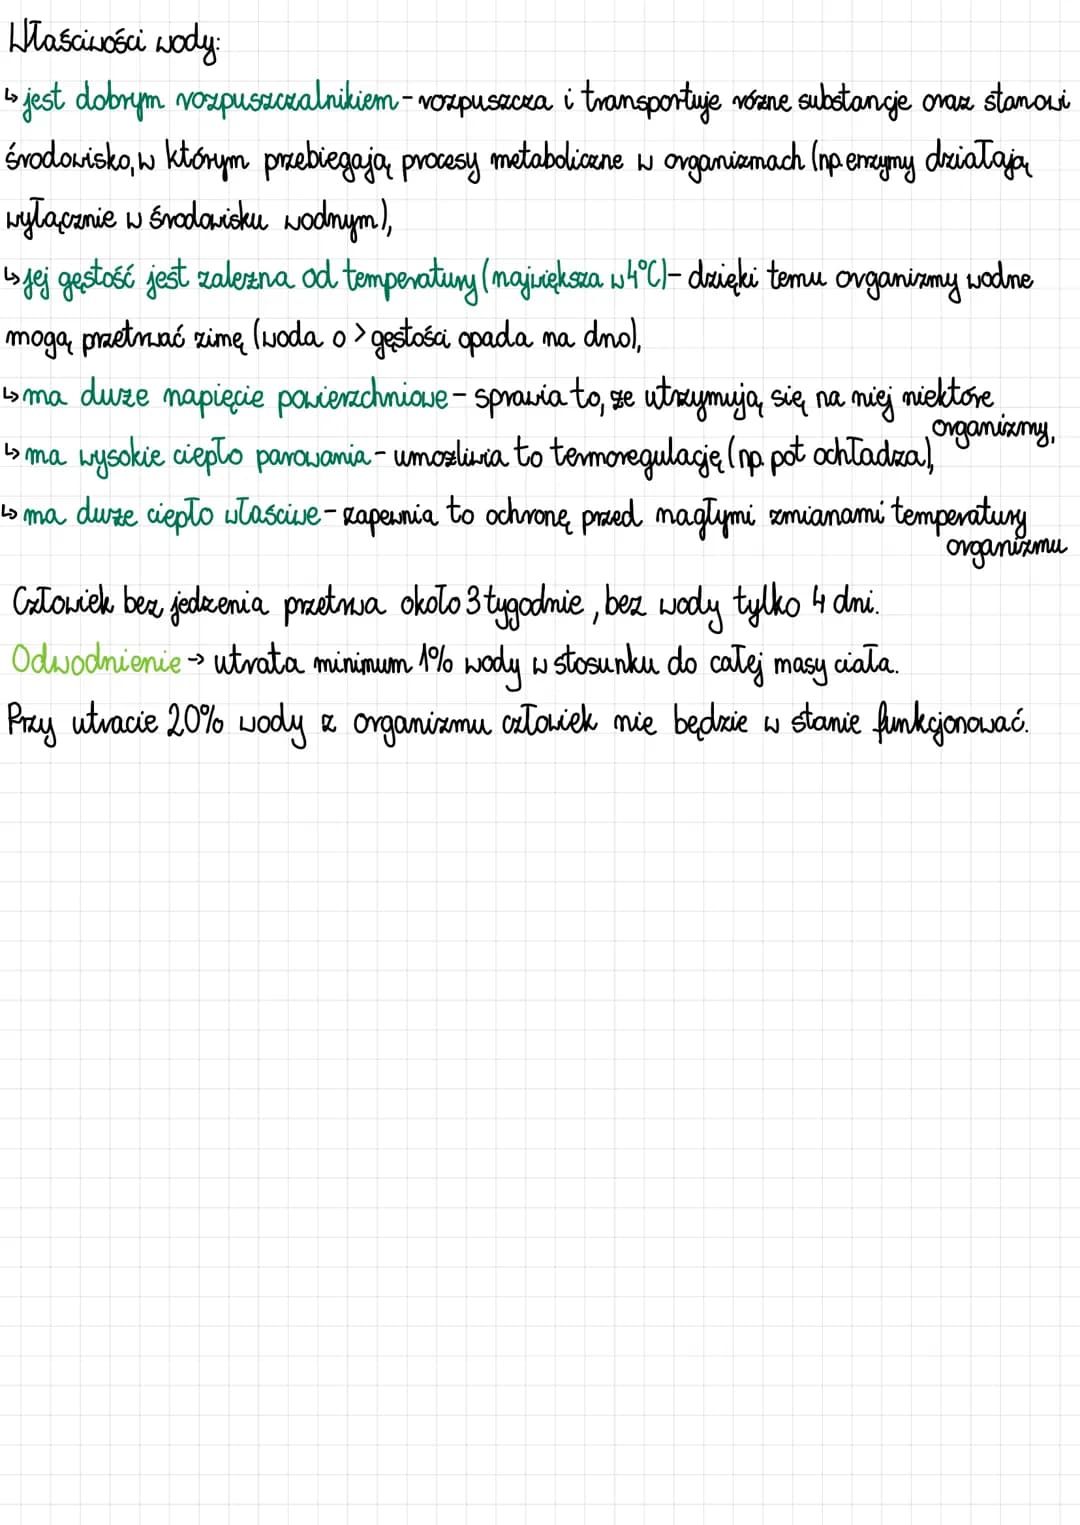 Właściwości wody:
↳ jest dobrym rozpuszczalnikiem - rozpuszcza i transportuje różne substancje oraz stanowi
środowisko, w którym przebiegają procesy metaboliczne w organizmach (np. enzymy działają
wyłącznie w środowisku wodnym),
↳ jej gęstość jest zależna od temperatury (największa w 4°C) - dzięki temu organizmy wodne
mogą przetrwać zimę (woda o > gęstości opada na dno),
↳ ma duże napięcie powierzchniowe - sprawia to, że utrzymują się na niej niektóre
organizmy,
↳ ma wysokie ciepło parowania - umożliwia to termoregulację (np. pot ochładza),
↳ ma duże ciepło właściwe - zapewnia to ochronę przed nagłymi zmianami temperatury
organizmu
Człowiek bez jedzenia przetrwa około 3 tygodnie, bez wody tylko 4 dni.
Odwodnienie → utrata minimum 1% wody w stosunku do całej masy ciała.
Przy utracie 20% wody z organizmu człowiek nie będzie w stanie funkcjonować.